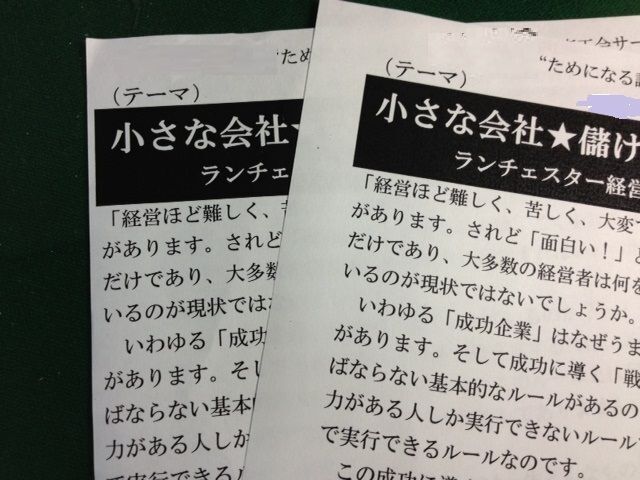 “ため
（テーマ）
小さな会社★
ランチェス
「経営ほど難しく、苦
があります。されど
だけであり、大多数の
いるのが現状では
いわゆる「成功
があります。そし
ばならない基本
力がある人しか
で実行できるル
“ためになる
（テーマ）
小さな会社★儲け
ランチェスター経営
「経営ほど難しく、苦しく、大変で
があります。されど「面白い！」と
だけであり、大多数の経営者は何を
いるのが現状ではないでしょうか。
いわゆる「成功企業」はなぜうま
があります。そして成功に導く「戦
ばならない基本的なルールがあるの
力がある人しか実行できないルール
で実行できるルールなのです。
この成功に導